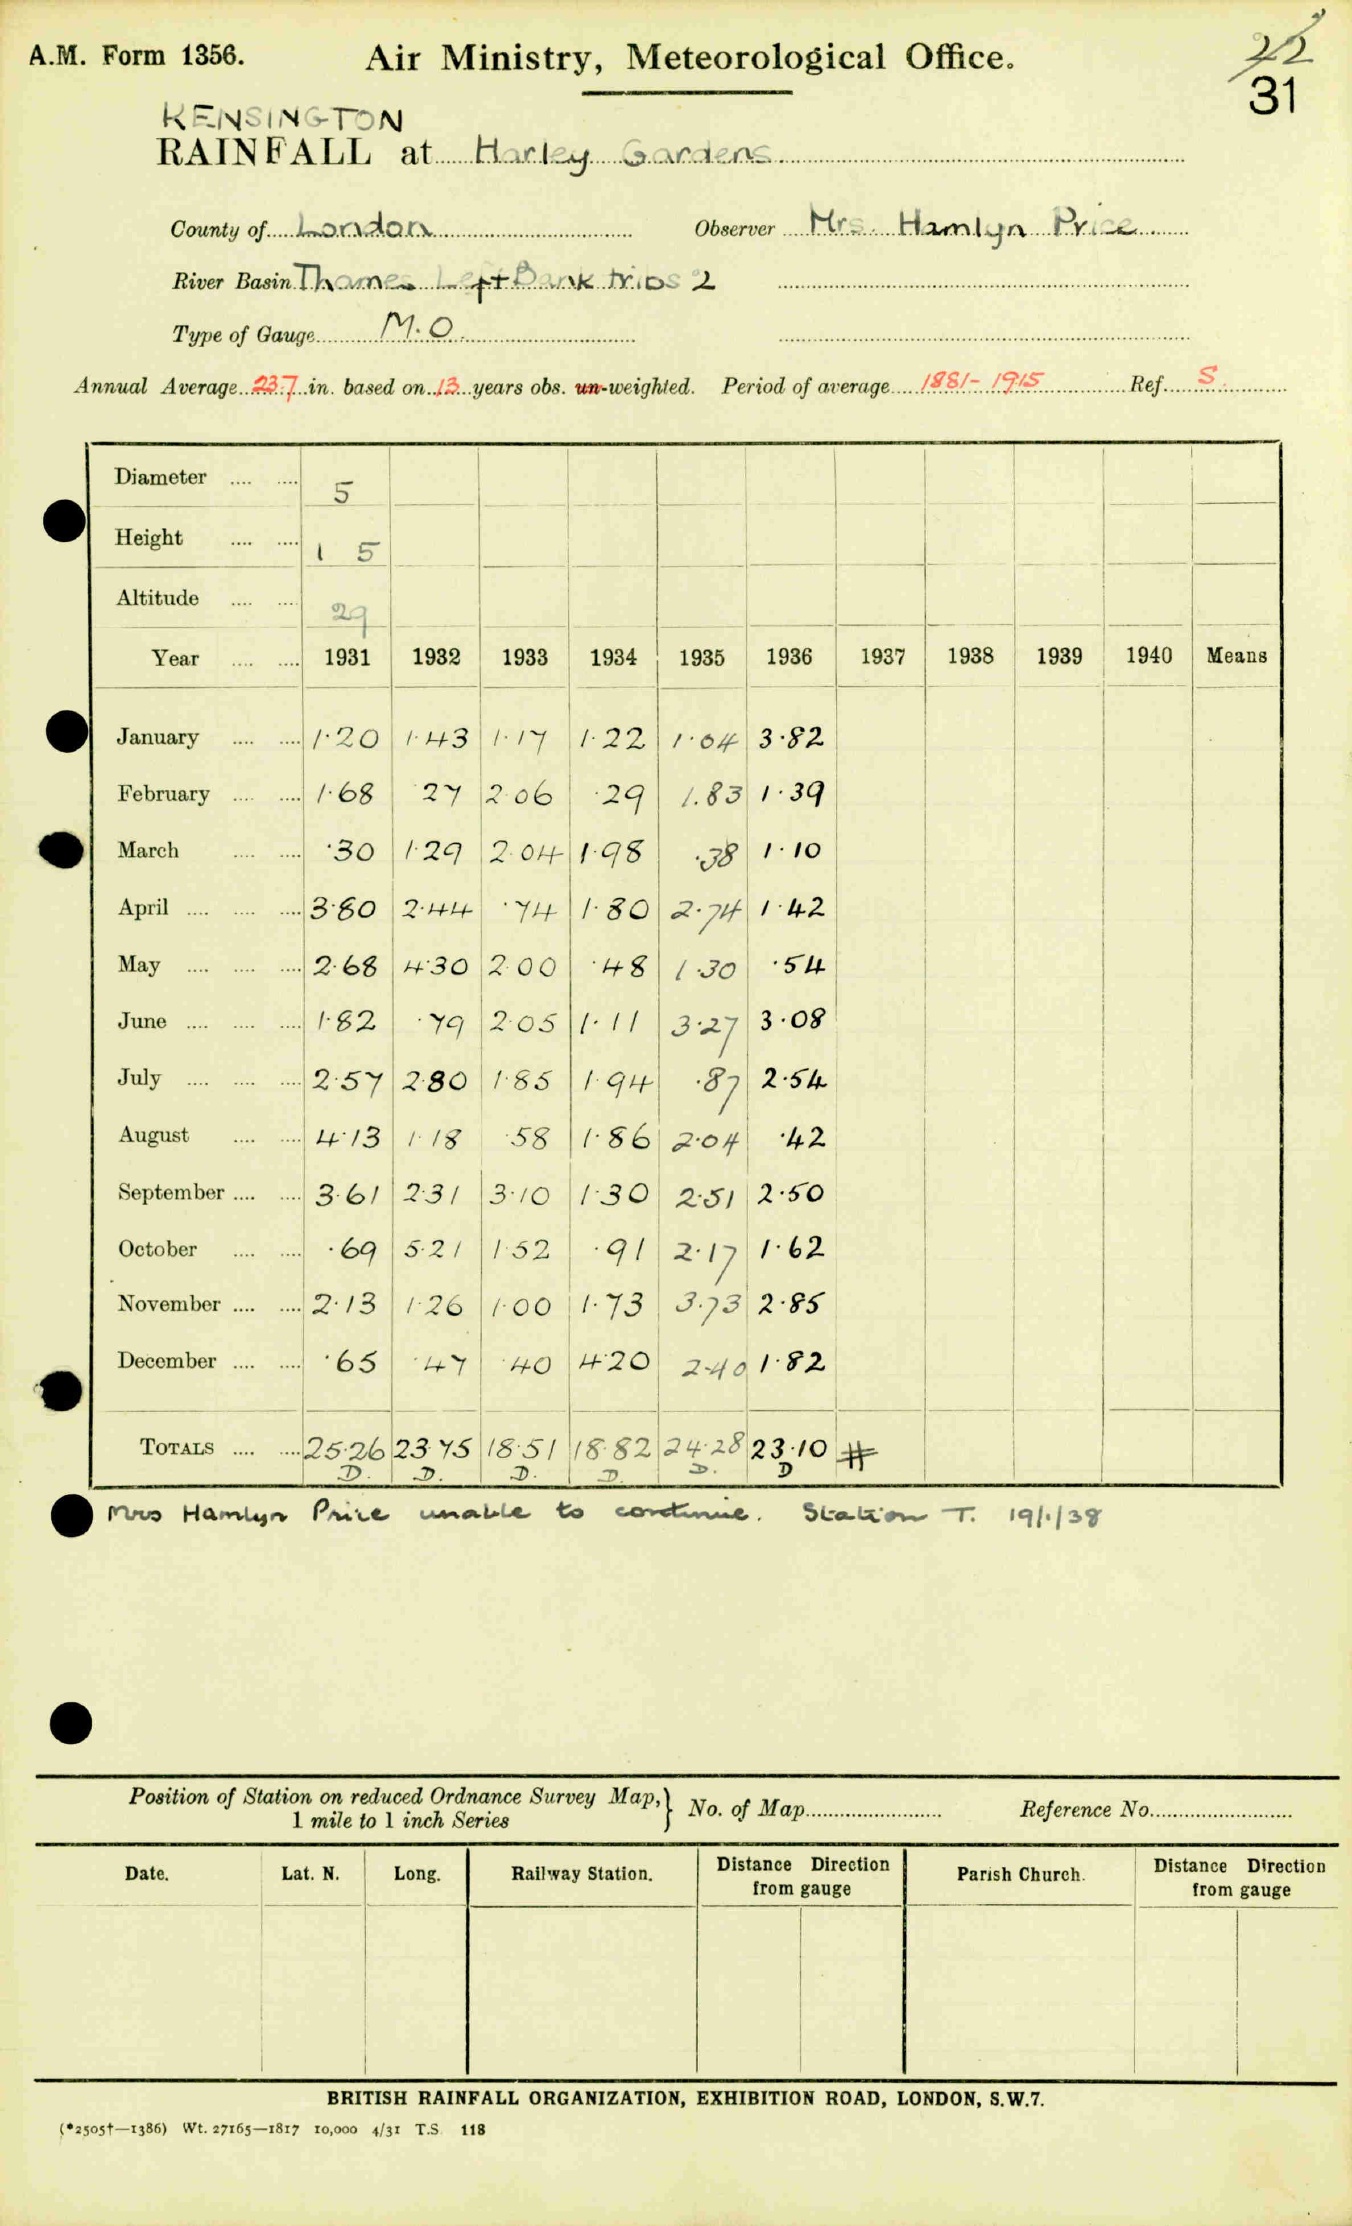 A.M. Form 1356.
Air Ministry, Meteorological Office.
22
31
KENSINGTON
RAINFALL at Harley Gardens
County of London Observer Mrs. Hamlyn Price
River Basin Thames Left Bank tribs 2
Type of Gauge M.O.
Annual Average 23.7 in. based on 13 years obs. un-weighted. Period of average 1881-1915 Ref. S.
Diameter .... .... 5
Height .... .... 1 5
Altitude .... .... 29
Year .... .... 1931 1932 1933 1934 1935 1936 1937 1938 1939 1940 Means
January .... .... 1·20 1·43 1·17 1·22 1·04 3·82
February .... .... 1·68 27 2·06 ·29 1.83 1·39
March .... .... ·30 1·29 2·04 1·98 ·38 1·10
April .... .... .... 3·80 2·44 ·74 1·80 2·74 1·42
May .... .... .... 2·68 4·30 2·00 ·48 1·30 ·54
June .... .... .... 1·82 ·79 2·05 1·11 3·27 3·08
July .... .... .... 2·57 2·80 1·85 1·94 ·87 2·54
August .... .... 4·13 1·18 ·58 1·86 2·04 ·42
September .... .... 3·61 2·31 3·10 1·30 2·51 2·50
October .... .... ·69 5·21 1·52 ·91 2·17 1·62
November .... .... 2·13 1·26 1·00 1·73 3·73 2·85
December .... .... ·65 ·47 ·40 4·20 2·40 1·82
TOTALS .... .... 25·26 23·75 18·51 18·82 24·28 23·10 #
D. D. D. D. D. D
Mrs Hamlyn Price unable to continue. Station T. 19/1/38
Position of Station on reduced Ordnance Survey Map,
1 mile to 1 inch Series } No. of Map Reference No.
Date. Lat. N. Long. Railway Station. Distance Direction from gauge Parish Church. Distance Direction from gauge
BRITISH RAINFALL ORGANIZATION, EXHIBITION ROAD, LONDON, S.W.7.
(*2505†—1386) Wt. 27165—1817 10,000 4/31 T.S. 118